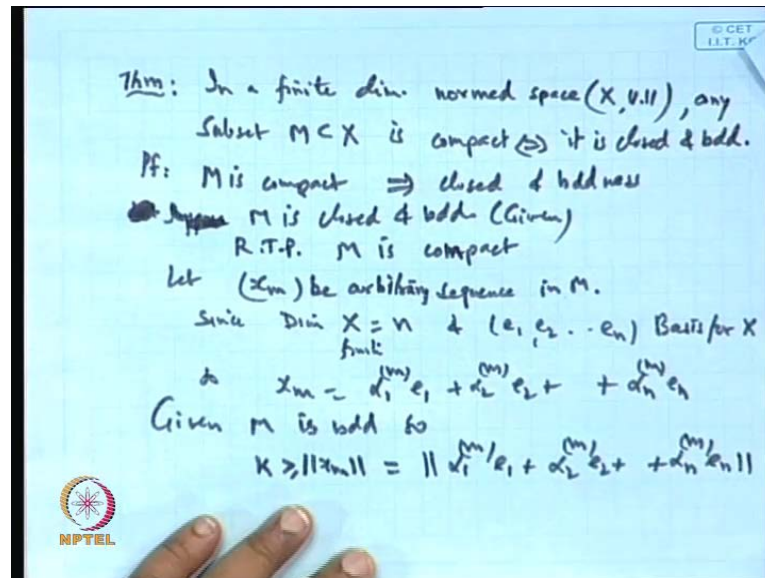 © CET
I.I.T. K
Thm: In a finite dim. normed space (X, ||.||), any
Subset M ⊂ X is compact ⇔ it is closed & bdd.
Pf: M is compact ⇒ closed & bddness
M is closed & bdd. (Given)
R.T.P. M is compact
Let (xₘ) be arbitrary sequence in M.
Since Dim X = n & (e₁, e₂ .. eₙ) Basis for X
finite
xₘ = α₁⁽ᵐ⁾ e₁ + α₂⁽ᵐ⁾ e₂ + + αₙ⁽ᵐ⁾ eₙ
Given M is bdd so
K ≥ ||xₘ|| = || α₁⁽ᵐ⁾ e₁ + α₂⁽ᵐ⁾ e₂ + + αₙ⁽ᵐ⁾ eₙ ||
NPTEL